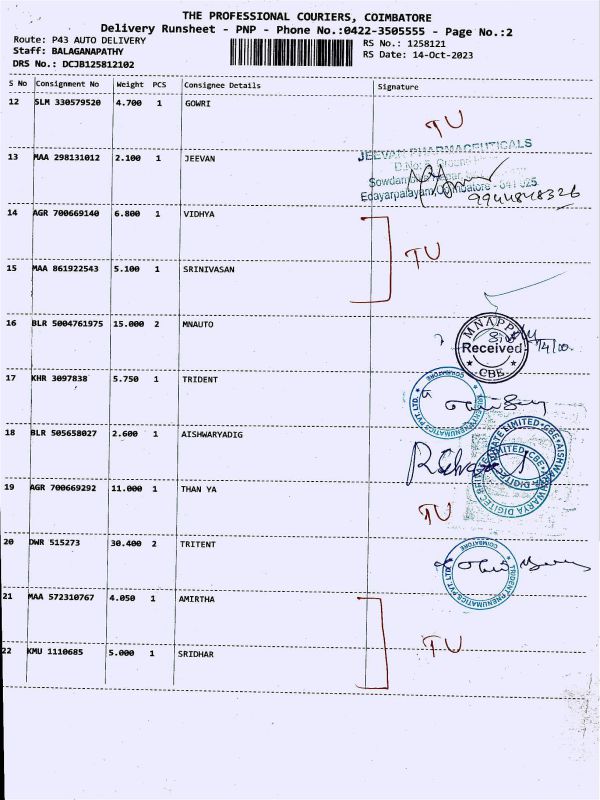 THE PROFESSIONAL COURIERS, COIMBATORE
Delivery Runsheet - PNP - Phone No.:0422-3505555 - Page No.:2
Route: P43 AUTO DELIVERY RS No.: 1258121
Staff: BALAGANAPATHY RS Date: 14-Oct-2023
DRS No.: DCJB125812102
S No Consignment No Weight PCS Consignee Details Signature
12 SLM 330579520 4.700 1 GOWRI
TU
JEEVAN PHARMACEUTICALS
13 MAA 298131012 2.100 1 JEEVAN
Edayarpalayam, Coimbatore - 641 025
9944848326
14 AGR 700669140 6.800 1 VIDHYA
TU
15 MAA 861922543 5.100 1 SRINIVASAN
16 BLR 5004761975 15.000 2 MNAUTO
Received
CBE
17 KHR 3097838 5.750 1 TRIDENT
COIMBATORE
TRIDENT PNEUMATICS PVT. LTD.
18 BLR 505658027 2.600 1 AISHWARYADIG
AISHWARYA DIGITEC PRIVATE LIMITED CBE
19 AGR 700669292 11.000 1 THAN YA
TU
20 DWR 515273 30.400 2 TRITENT
COIMBATORE
TRIDENT PNEUMATICS PVT. LTD.
21 MAA 572310767 4.050 1 AMIRTHA
TU
22 KMU 1110685 5.000 1 SRIDHAR